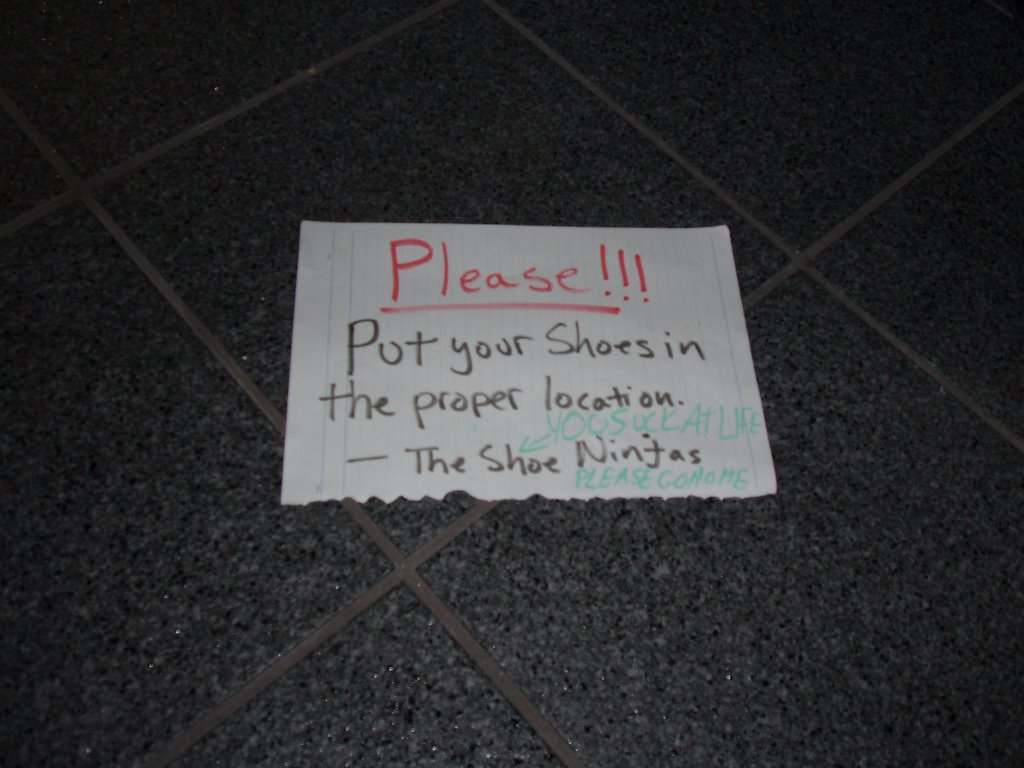 Please!!!
Put your Shoes in
the proper location.
YOU SUCK At LIFE
— The Shoe Ninjas
PLEASE GO HOME